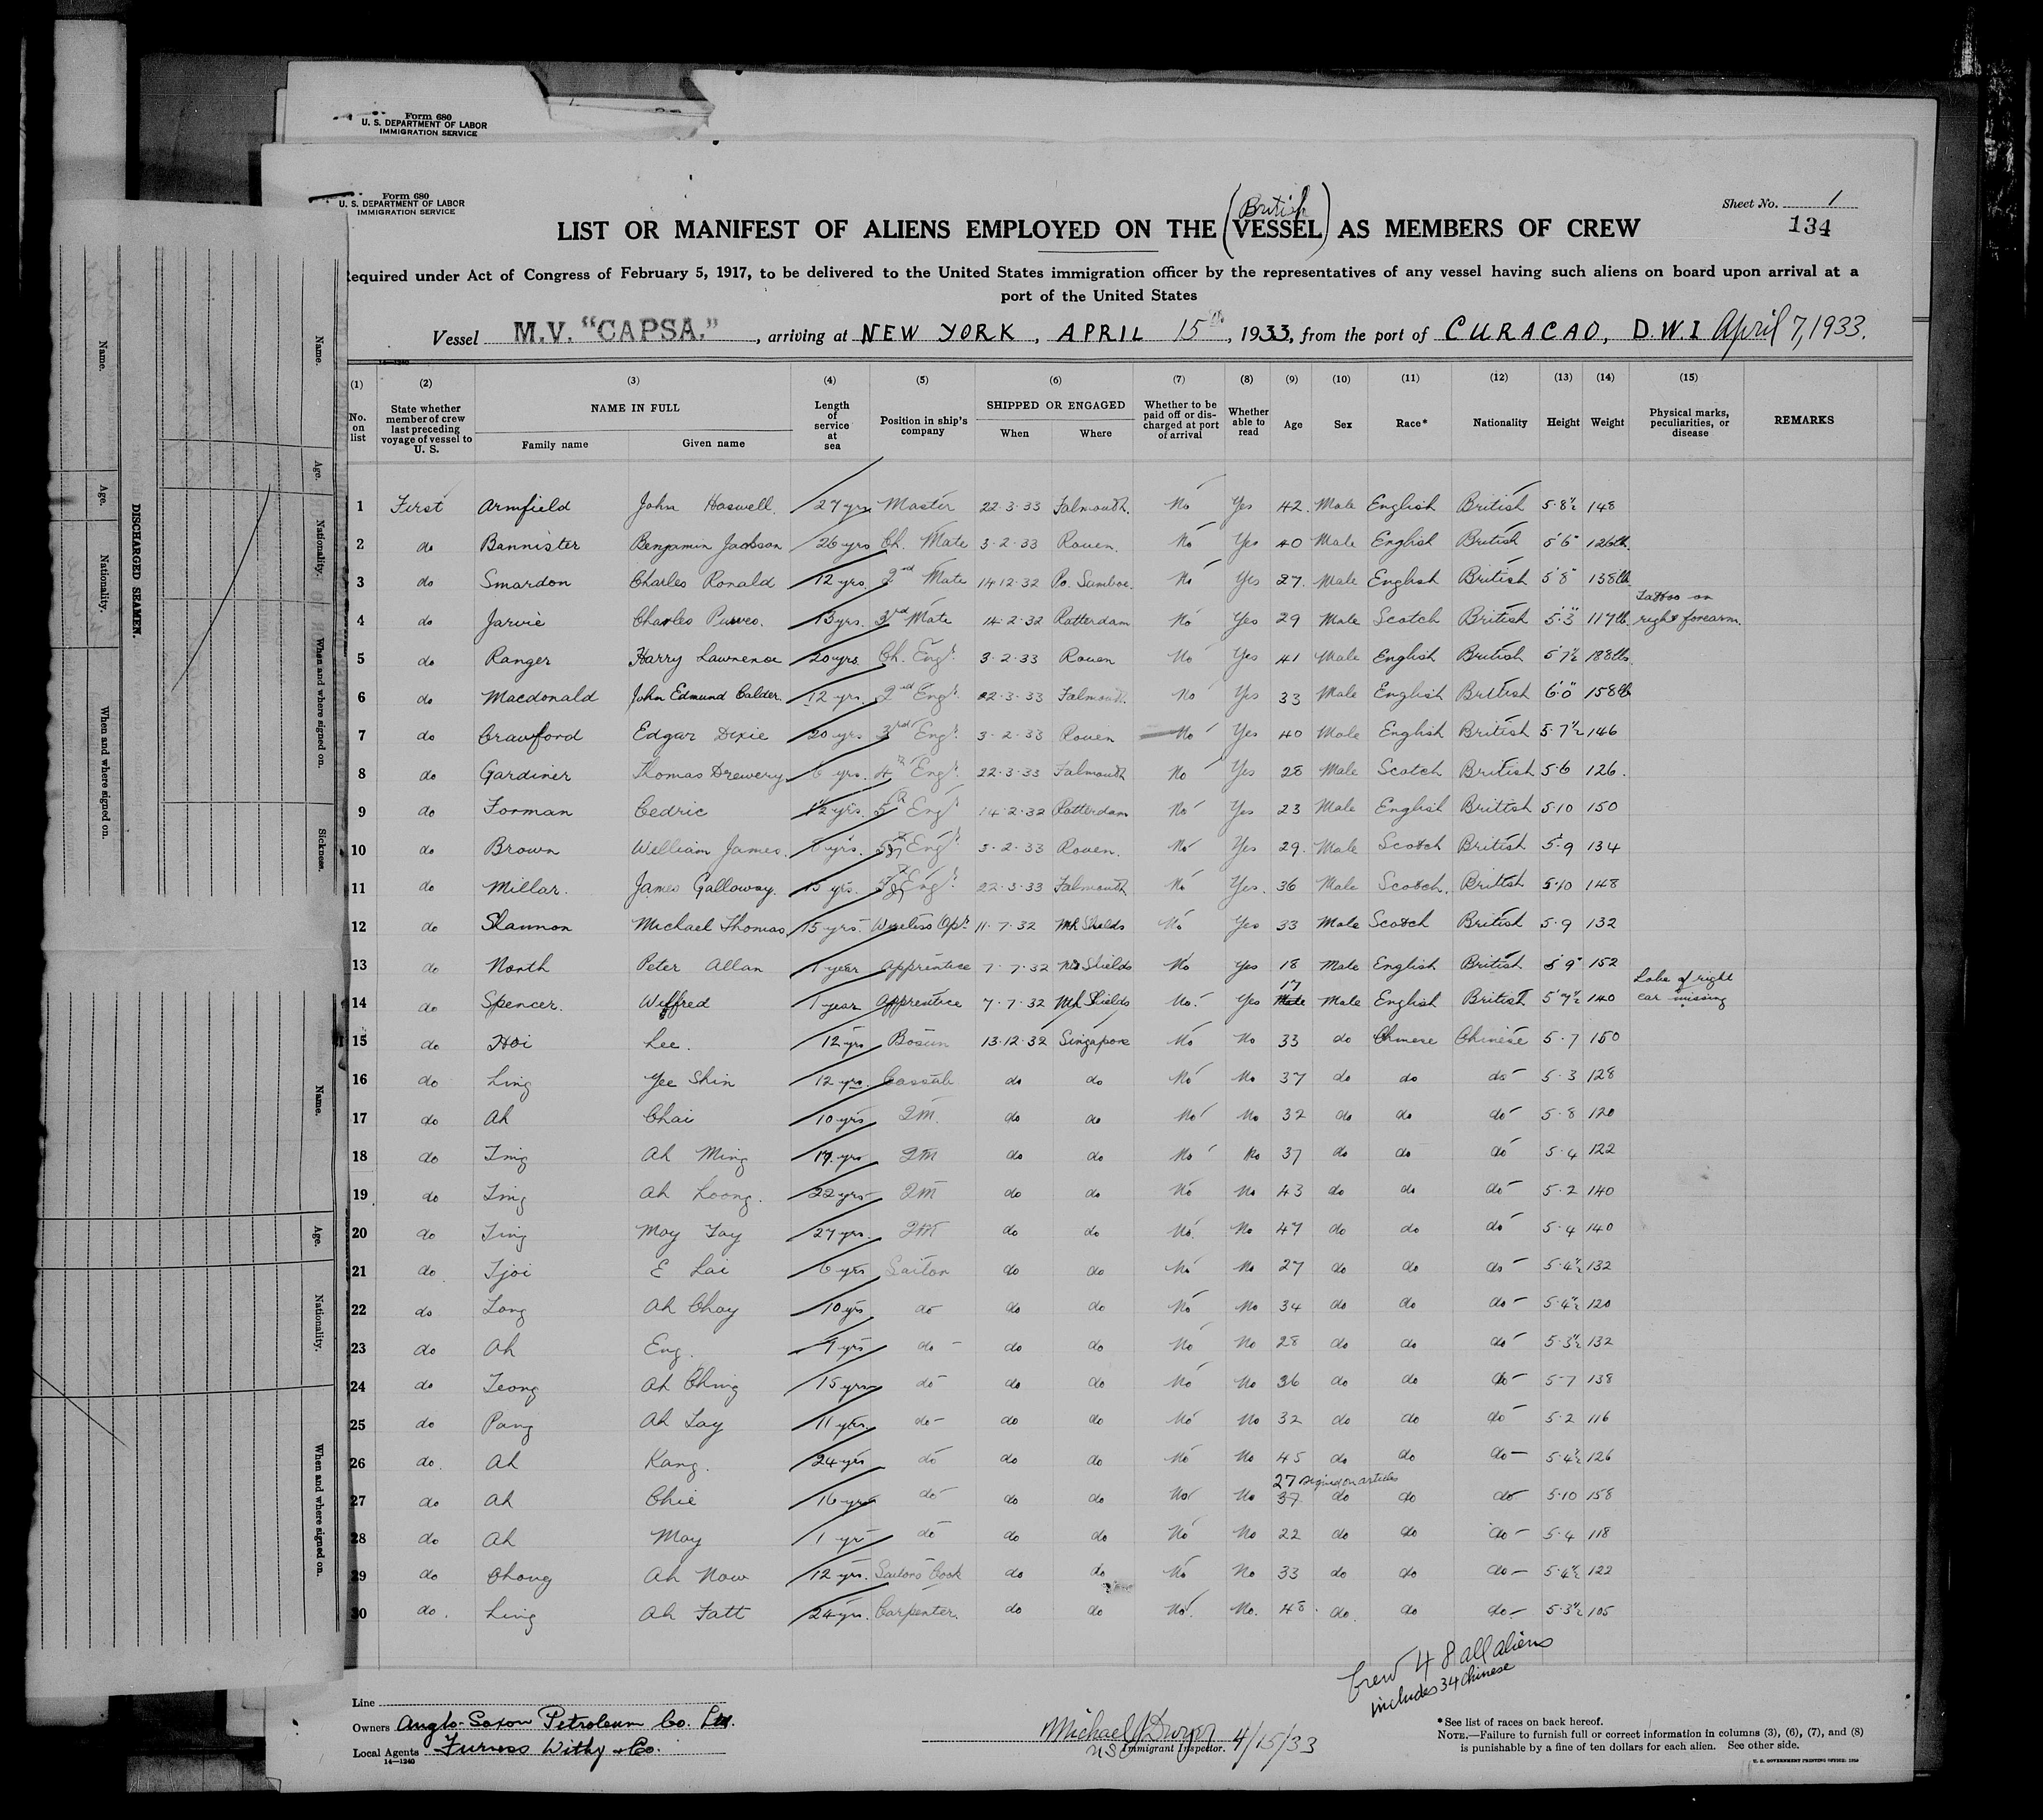 Form 680
U. S. DEPARTMENT OF LABOR
IMMIGRATION SERVICE
Form 680
U. S. DEPARTMENT OF LABOR
IMMIGRATION SERVICE
Sheet No. 1
134
LIST OR MANIFEST OF ALIENS EMPLOYED ON THE (British VESSEL) AS MEMBERS OF CREW
equired under Act of Congress of February 5, 1917, to be delivered to the United States immigration officer by the representatives of any vessel having such aliens on board upon arrival at a
port of the United States
Vessel M.V. "CAPSA.", arriving at NEW YORK, APRIL 15th, 1933, from the port of CURACAO, D.W.I April 7, 1933.
14—1240
(1) (2) (3) (4) (5) (6) (7) (8) (9) (10) (11) (12) (13) (14) (15)
No. on list State whether member of crew last preceding voyage of vessel to U. S. NAME IN FULL Family name Given name Length of service at sea Position in ship's company SHIPPED OR ENGAGED When Where Whether to be paid off or discharged at port of arrival Whether able to read Age Sex Race* Nationality Height Weight Physical marks, peculiarities, or disease REMARKS
1 First Armfield John Haswell 27 yrs Master 22-3-33 Falmouth. No Yes 42. Male English British 5-8½ 148
2 do Bannister Benjamin Jackson 26 yrs Ch. Mate 3-2-33 Rouen. No Yes 40 Male English British 5'6" 126lb.
3 do Smardon Charles Ronald 12 yrs. 2nd Mate 14-12-32 No Yes 27. Male English British 5'8" 138lb
4 do Jarvie Charles Purves. 13 yrs. 3rd Mate 14-2-32 Rotterdam No Yes 29 Male Scotch British 5'3" 117lb. Tattoo on right forearm.
5 do Ranger Harry Lawrence 20 yrs. Ch. Engr. 3-2-33 Rouen No Yes 41 Male English British 5'7½ 188lbs
6 do Macdonald John Edmund Calder. 12 yrs. 2nd Engr. 22-3-33 Falmouth. No Yes 33 Male English British 6'0" 158lb
7 do Crawford Edgar Dixie 20 yrs. 3rd Engr. 3-2-33 Rouen No Yes 40 Male English British 5-7½ 146
8 do Gardiner Thomas Drewery 6 yrs. 4th Engr. 22-3-33 Falmouth No Yes 28 Male Scotch British 5-6 126.
9 do Forman Cedric yrs. 5th Engr 14-2-32 Rotterdam No Yes 23 Male English British 5-10 150
10 do Brown William James. yrs. Engr. 3-2-33 Rouen. No Yes 29. Male Scotch British 5-9 134
11 do Millar. James Galloway. 15 yrs. Engr. 22-3-33 Falmouth No Yes. 36 Male Scotch. British 5-10 148
12 do Shannon Michael Thomas 15 yrs. Wireless Opr. 11-7-32 Shields No Yes 33 Male Scotch British 5-9 132
13 do North Peter Allan 1 year Apprentice 7-7-32 Shields No Yes 18 Male English British 5'9" 152
14 do Spencer. Wilfred 1 year Apprentice 7-7-32 Shields No. Yes 17 Male English British 5'7½ 140 Lobe of right ear missing
15 do Hoi Lee. 12 yrs Bosun 13-12-32 Singapore No No 33 do Chinese Chinese 5-7 150
16 do Ling Yee Shin 12 yrs. Cassab do do No No 37 do do do 5-3 128
17 do Ah Chai 10 yrs QM. do do No No 32 do do do 5-8 120
18 do Ting Ah Ming yrs QM do do No No 37 do do do 5-4 122
19 do Ting Ah Loong. 22 yrs QM do do No No 43 do do do 5-2 140
20 do Ting Moy Tay 27 yrs. QM do do No. No 47 do do do 5-4 140
21 do Tjoi E Lai 6 yrs Sailor do do No No 27 do do do 5-4½ 132
22 do Long Ah Chay 10 yrs do do do No No 34 do do do 5-4½ 120
23 do Ah Eng. 9 yrs do do do No No 28 do do do 5-3½ 132
24 do Teong Ah Ching 15 yrs do do do No No 36 do do do 5-7 138
25 do Pang Ah Lay 11 yrs do do do No No 32 do do do 5-2 116
26 do Ah Kang. 24 yrs do do do No No 45 do do do 5-4½ 126
27 signed on articles
27 do Ah Chie 16 yrs do do do No No 37 do do do 5-10 158
28 do Ah Moy 1 yr do do do No No 22 do do do 5-4 118
29 do Chong Ah Now 12 yrs. Sailors Cook do do No No 33 do do do 5-4½ 122
30 do Ling Ah Fatt 24 yrs. Carpenter. do do No. No. 48 do do do 5-3½ 105
Crew 48 all aliens
includes 34 Chinese
Line
Owners Anglo-Saxon Petroleum Co. Ltd.
Local Agents Furness Withy & Co.
14—1240
Michael J Dwyer
Immigrant Inspector. 4/15/33
*See list of races on back hereof.
NOTE.—Failure to furnish full or correct information in columns (3), (6), (7), and (8)
is punishable by a fine of ten dollars for each alien. See other side.
U. S. GOVERNMENT PRINTING OFFICE: 1929
DISCHARGED SEAMEN.
Name.
Age.
Nationality.
When and where signed on.
Name.
Age.
Nationality.
When and where signed on.
Sickness.
Name.
Age.
Nationality.
When and where signed on.